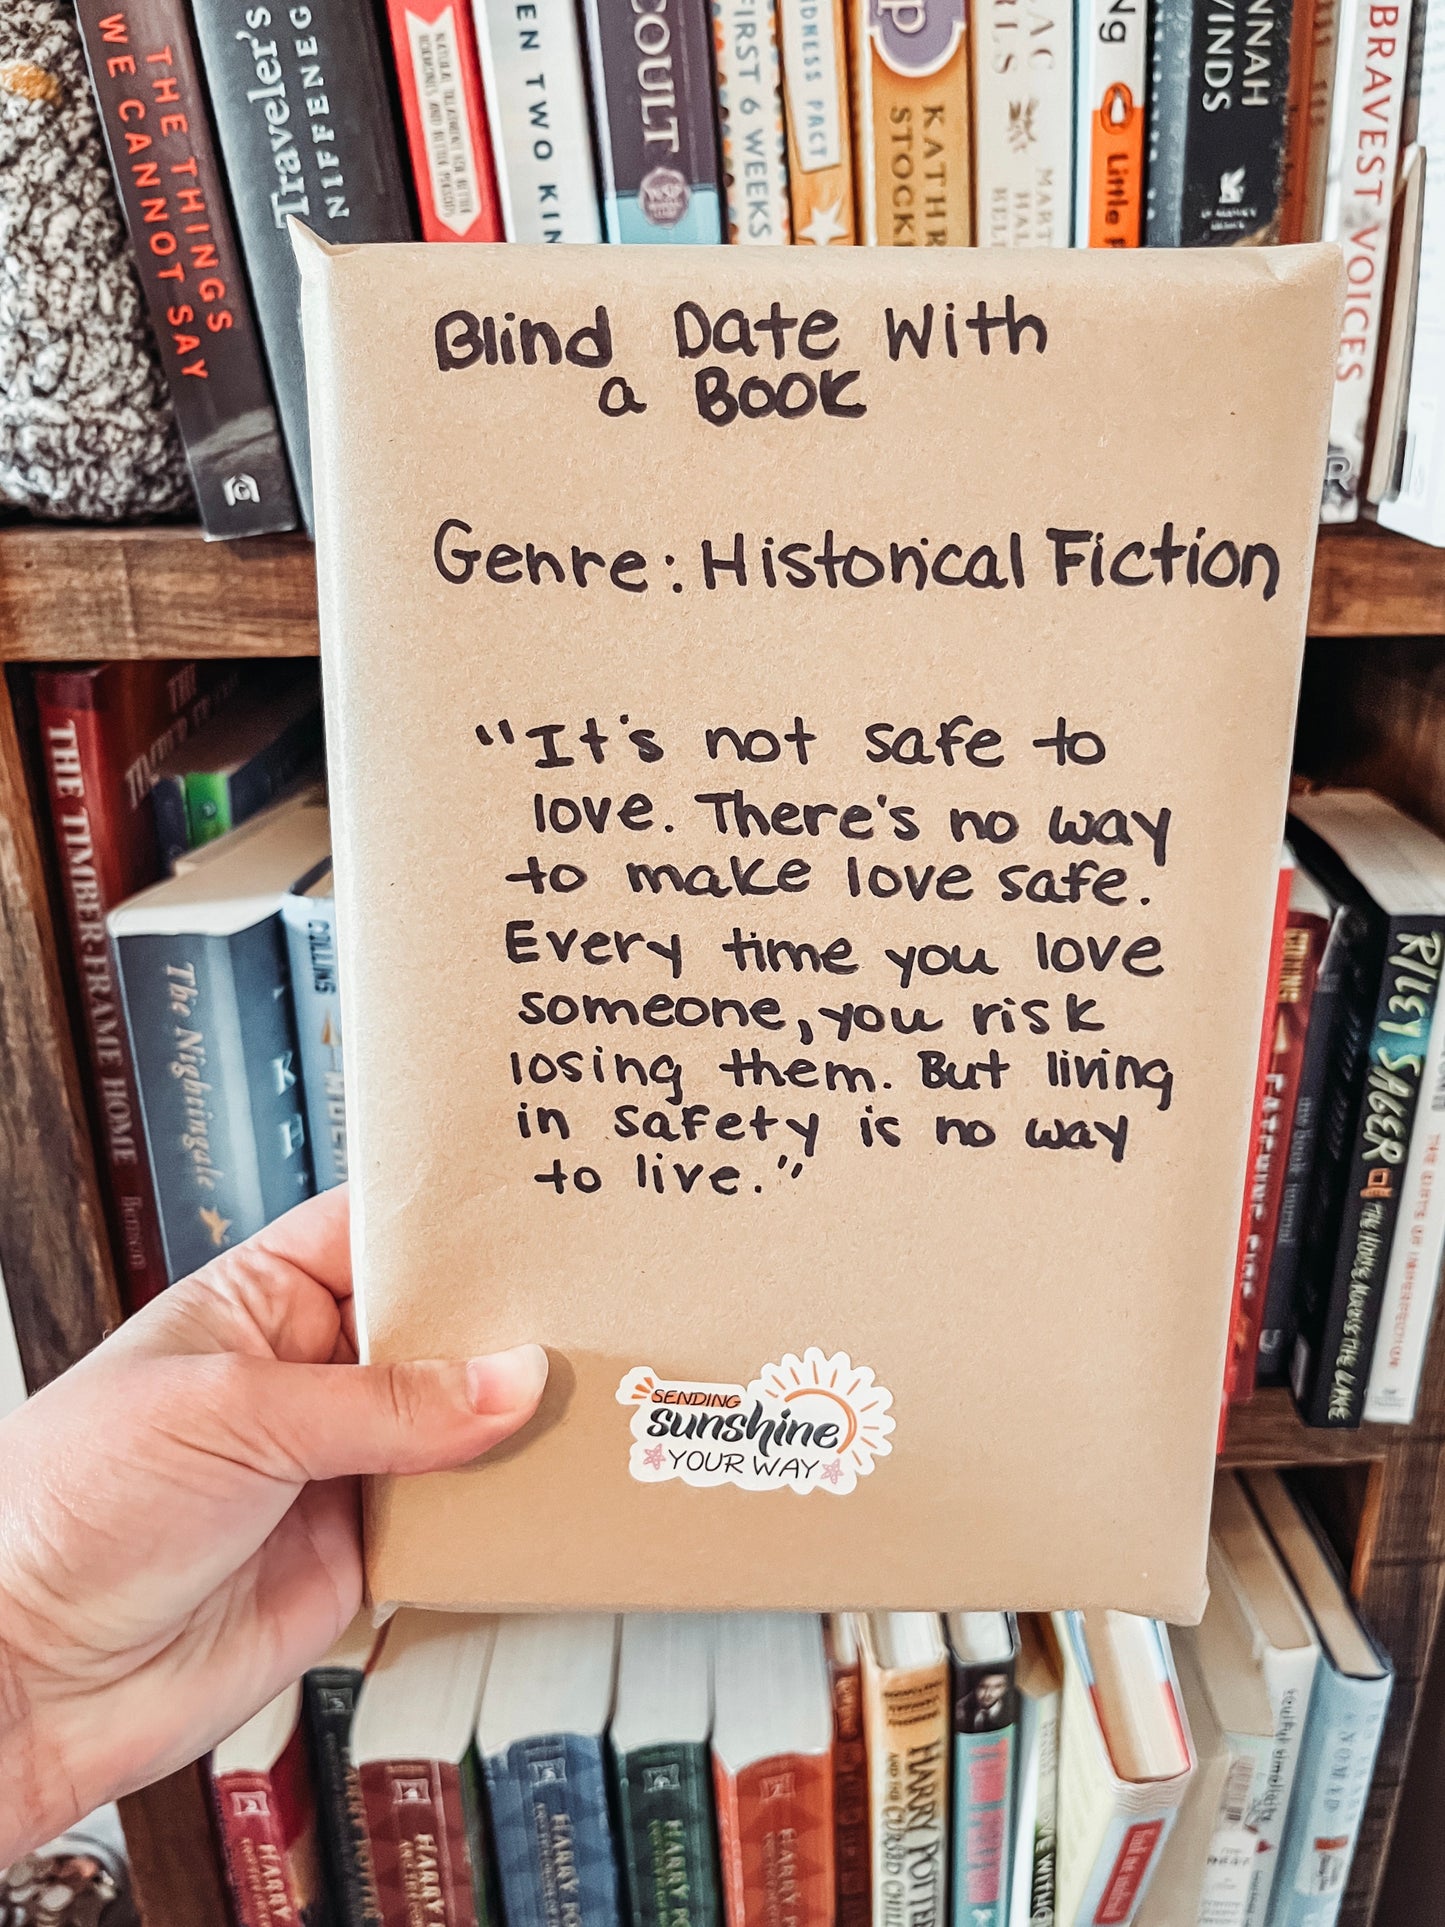 THE THINGS
WE CANNOT SAY
Traveler's
NIFFENEG
EN TWO KIN
COULT
FIRST 6 WEEKS
NDNESS PACT
KATHR
STOCK
MART
HAL
KEL
Little
NNAH
WINDS
BRAVEST VOICES
Blind Date With
a Book
Genre: Historical Fiction
"It's not safe to
love. There's no way
to make love safe.
Every time you love
someone, you risk
losing them. But living
in safety is no way
to live."
SENDING
sunshine
YOUR WAY
THE TIMBER-FRAME HOME
Benson
The Nightingale
COLLINS
RILEY SAGER
HARRY
HARRY
HARRY PO
HARRY
HARRY
HARRY POTTER
AND THE CURSED CHIL